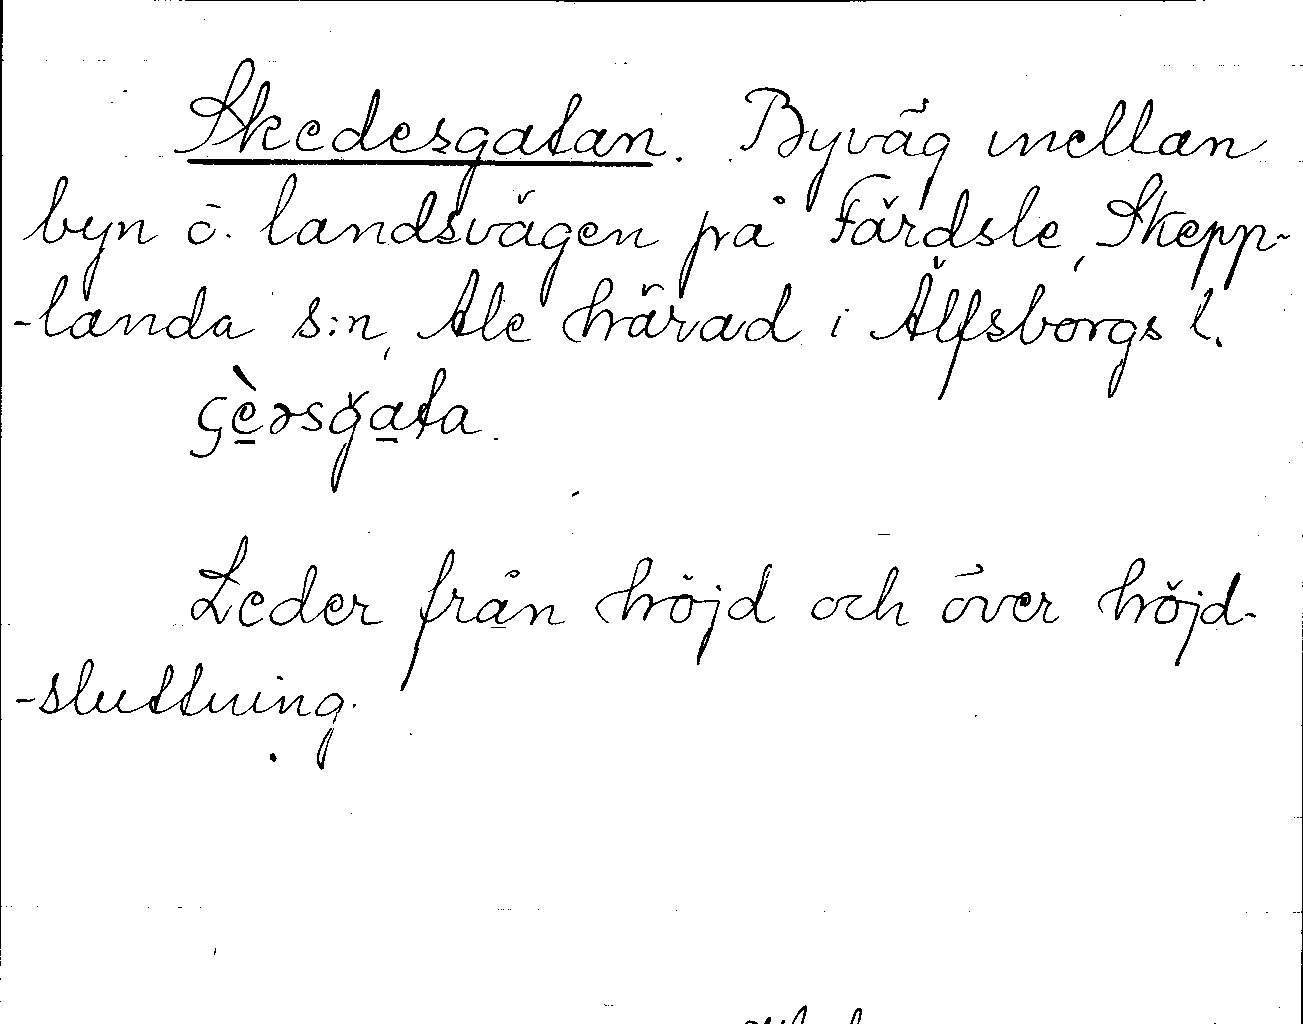 Skedesgatan. Byväg mellan
byn ö. landsvägen på Färdsle, Skepp-
-landa s:n, Ale härad i Älfsborgs l.
çè̲əsğa̲ta.
Leder från höjd och över höjd-
-sluttning.